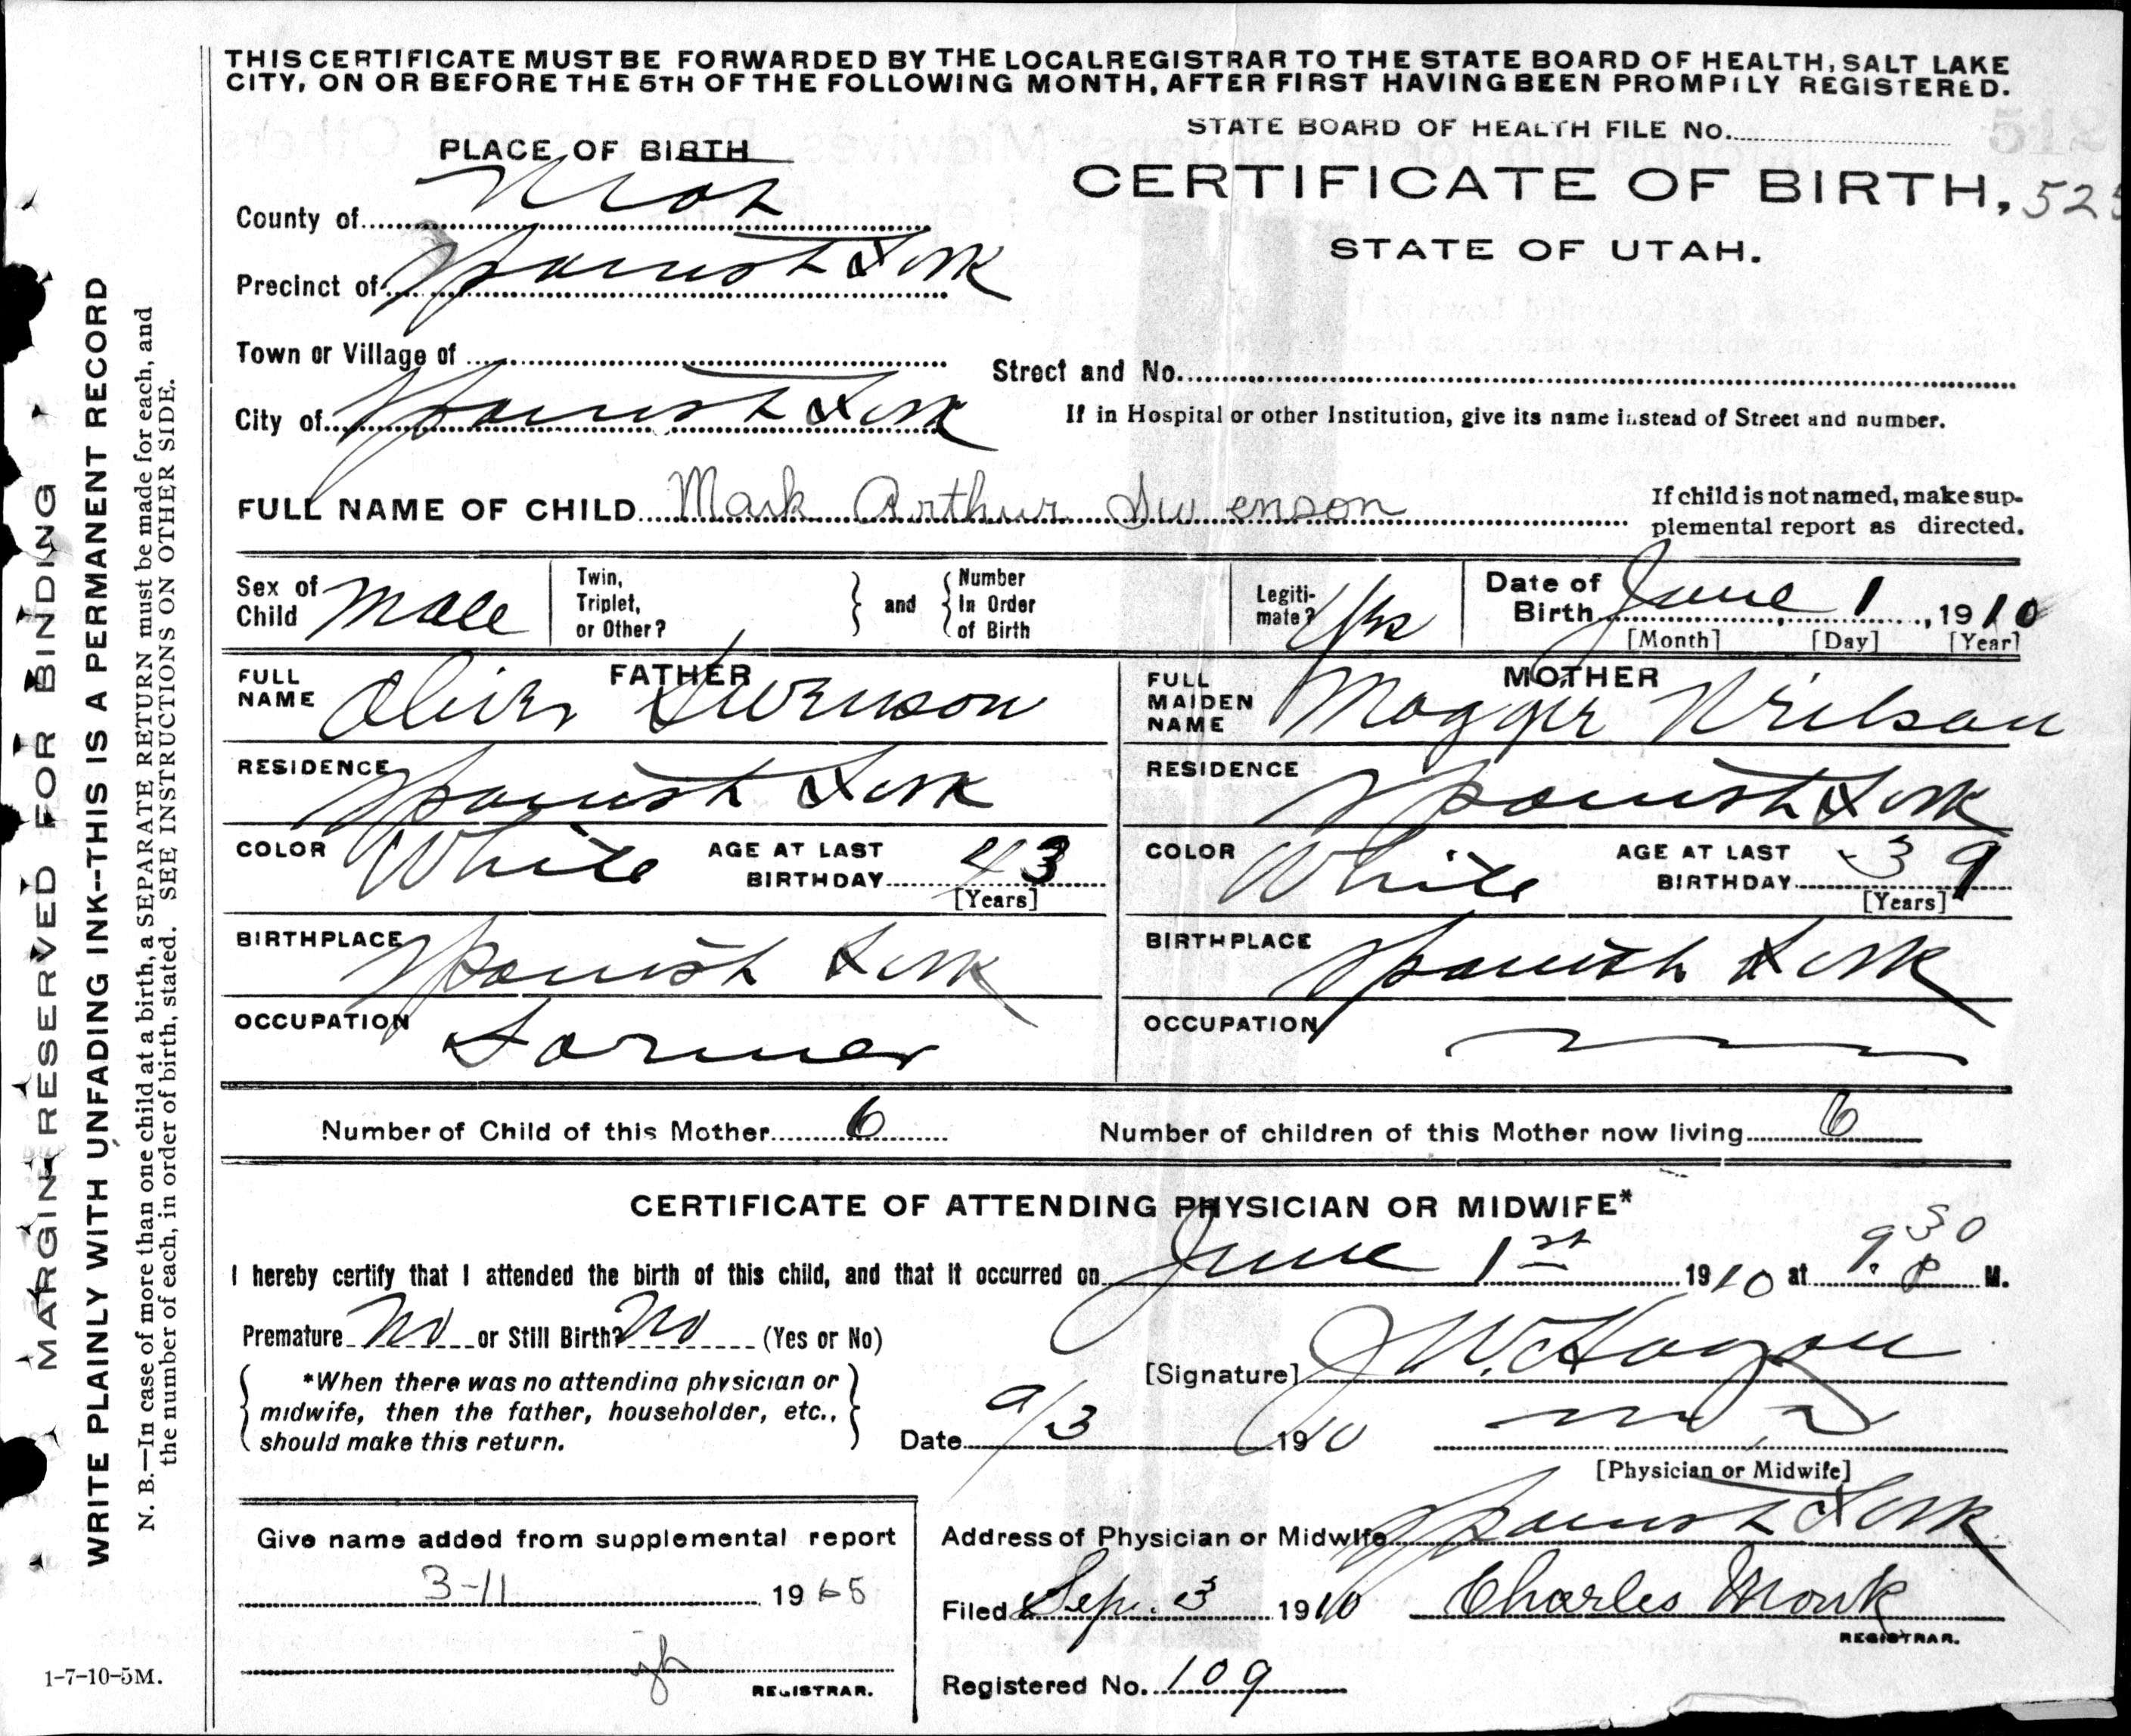 THIS CERTIFICATE MUST BE FORWARDED BY THE LOCAL REGISTRAR TO THE STATE BOARD OF HEALTH, SALT LAKE
CITY, ON OR BEFORE THE 5TH OF THE FOLLOWING MONTH, AFTER FIRST HAVING BEEN PROMPILY REGISTERED.
STATE BOARD OF HEALTH FILE No.
PLACE OF BIRTH
CERTIFICATE OF BIRTH, 525
STATE OF UTAH.
County of Utah
Precinct of Spanish Fork
Town or Village of
Street and No.
City of Spanish Fork
If in Hospital or other Institution, give its name instead of Street and number.
FULL NAME OF CHILD Mark Arthur Swenson
If child is not named, make sup-
plemental report as directed.
Sex of Child Male
Twin, Triplet, or Other?
and
Number In Order of Birth
Legiti-mate? Yes
Date of Birth June 1, 1910
[Month] [Day] [Year]
FATHER
FULL NAME Oliver Swenson
MOTHER
FULL MAIDEN NAME Nielson
RESIDENCE Spanish Fork
RESIDENCE Spanish Fork
COLOR White AGE AT LAST BIRTHDAY 43 [Years]
COLOR White AGE AT LAST BIRTHDAY 39 [Years]
BIRTHPLACE Spanish Fork
BIRTHPLACE Spanish Fork
OCCUPATION Farmer
OCCUPATION
Number of Child of this Mother 6
Number of children of this Mother now living 6
CERTIFICATE OF ATTENDING PHYSICIAN OR MIDWIFE*
I hereby certify that I attended the birth of this child, and that it occurred on June 1st 1910 at 9.30 P M.
Premature No or Still Birth? No (Yes or No)
[Signature] J W. Hagan
*When there was no attending physician or
midwife, then the father, householder, etc.,
should make this return.
Date 9/3 1910
[Physician or Midwife]
Give name added from supplemental report
3-11 1965
REGISTRAR.
Address of Physician or Midwife Spanish Fork
Filed Sep. 3 1910 Charles Monk
REGISTRAR.
Registered No. 109
1-7-10-5M.
MARGIN RESERVED FOR BINDING
WRITE PLAINLY WITH UNFADING INK--THIS IS A PERMANENT RECORD
N. B.—In case of more than one child at a birth, a SEPARATE RETURN must be made for each, and
the number of each, in order of birth, stated. SEE INSTRUCTIONS ON OTHER SIDE.